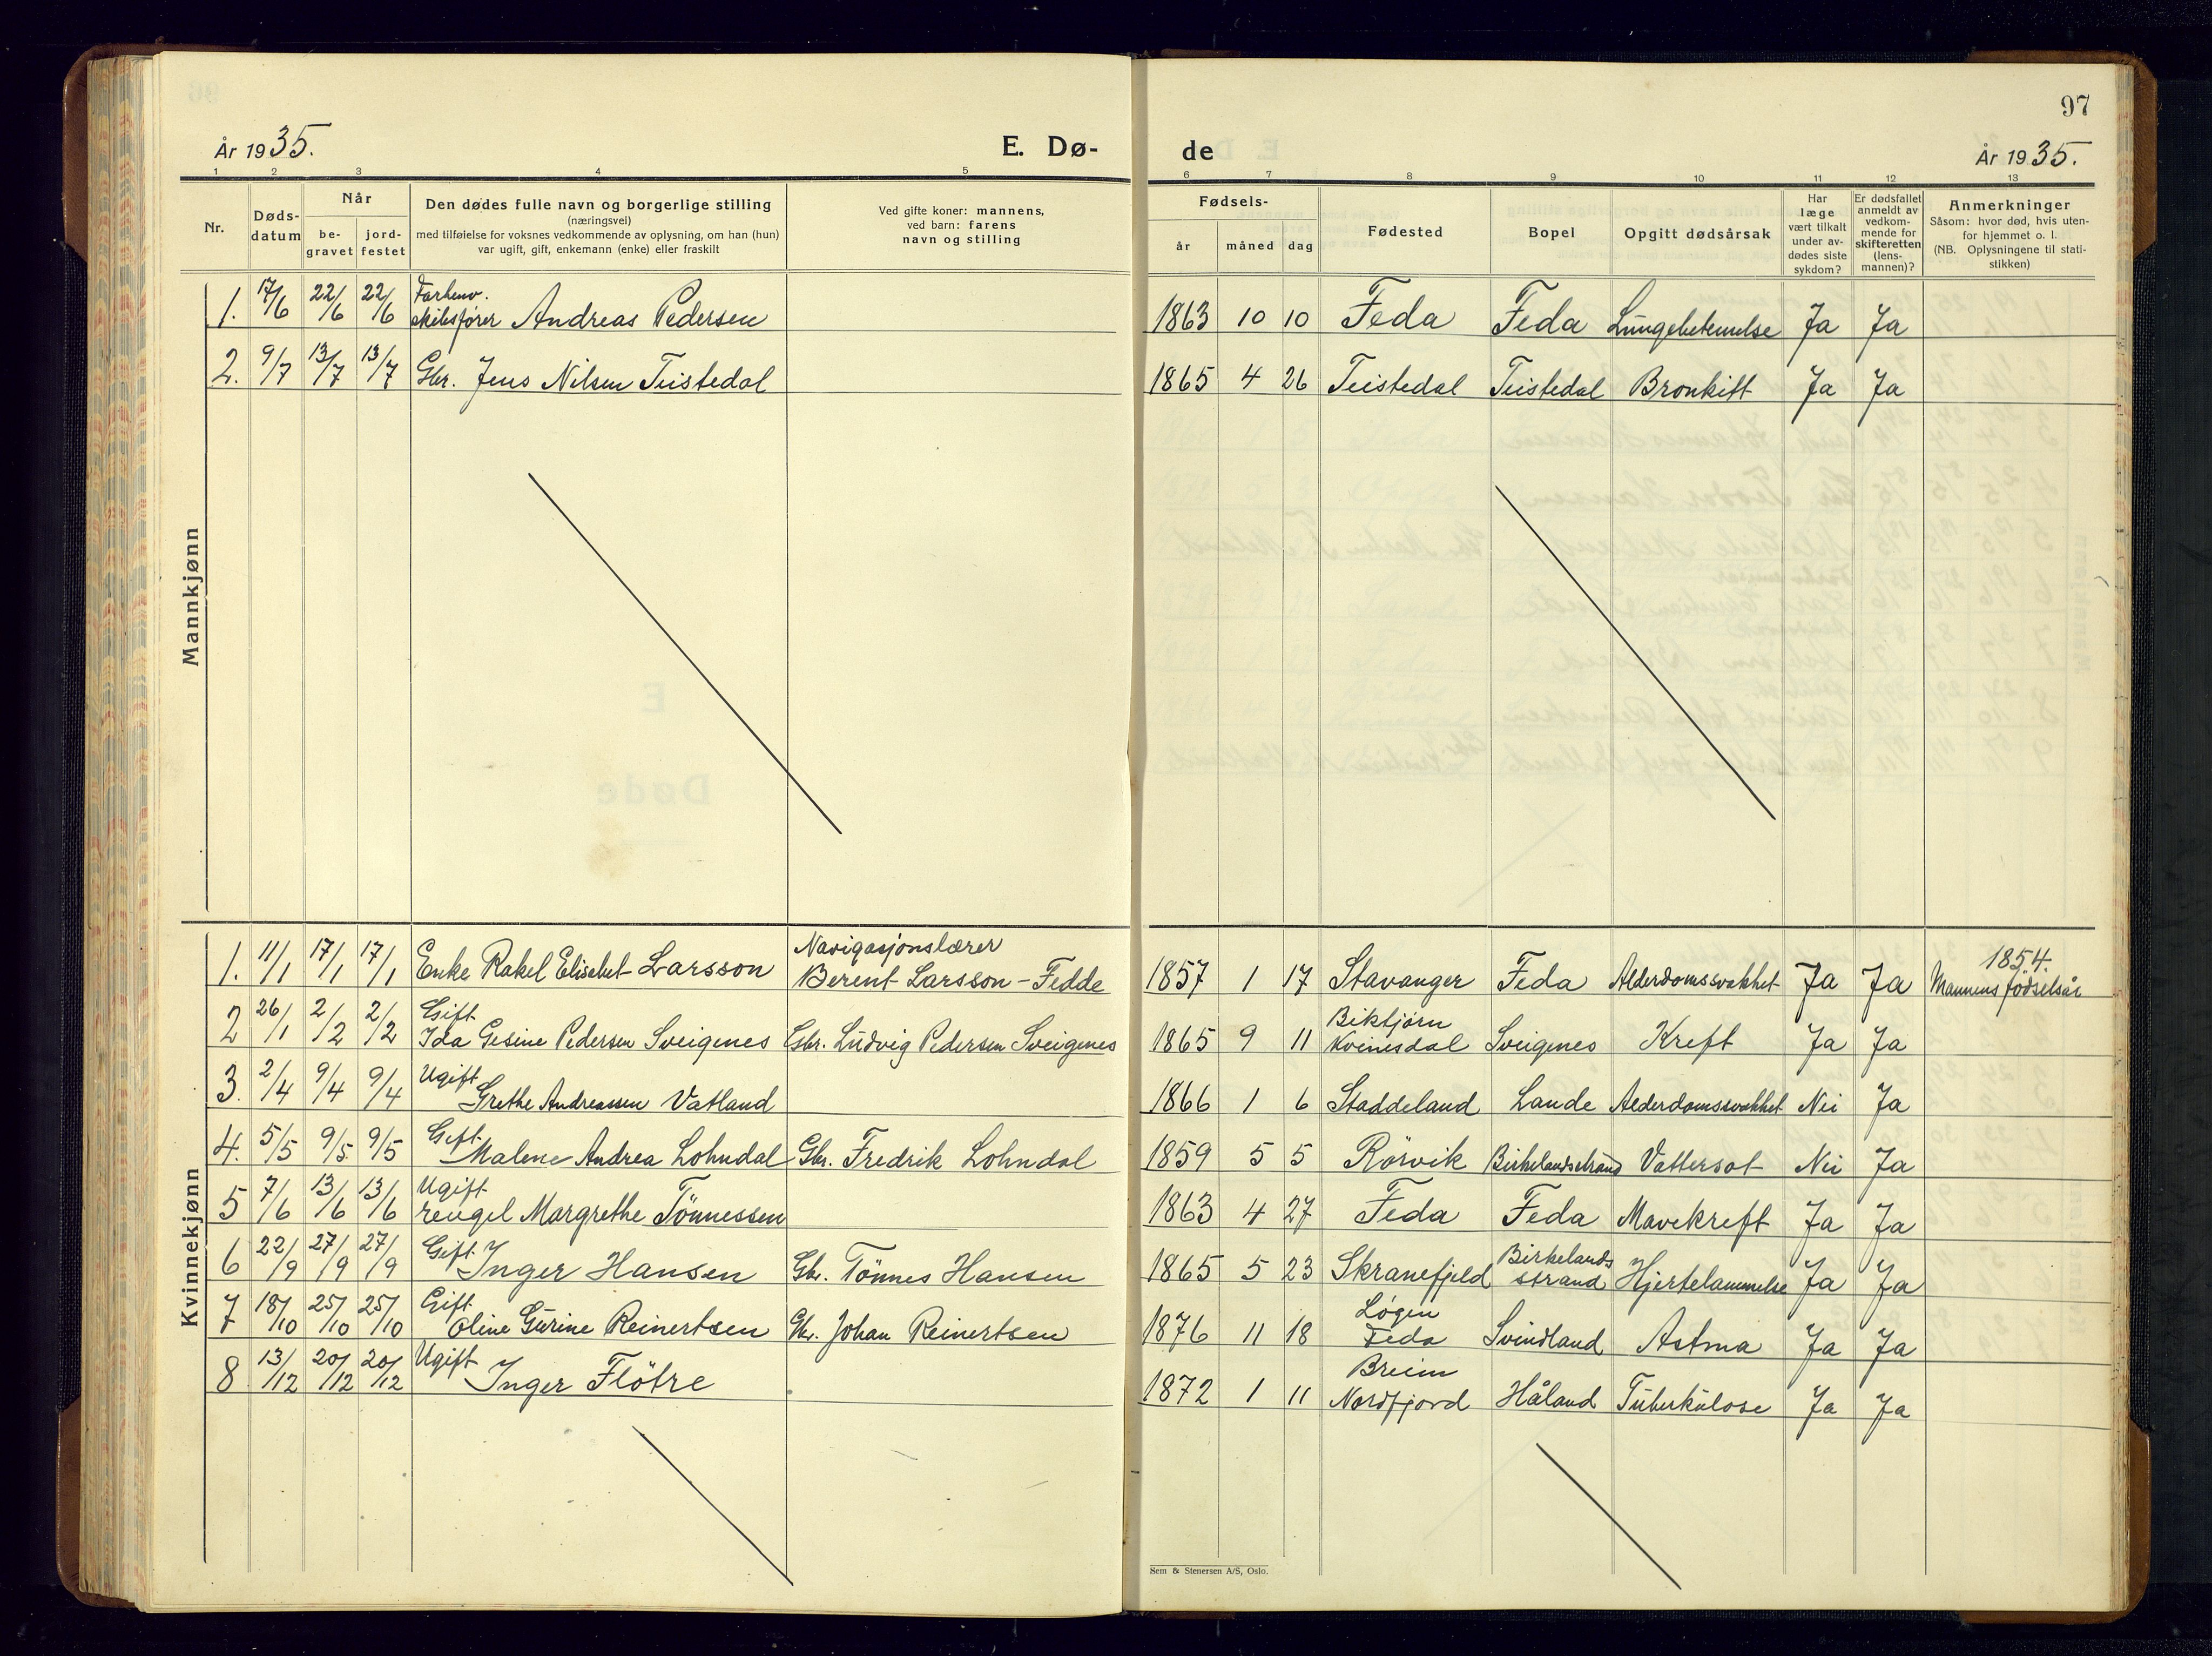 97
År 1935.
E. Dø-
de
År 1935.
1 2 3 4 5 6 7 8 9 10 11 12 13
Nr.
Døds-
datum
Når
be-
gravet
jord-
festet
Den dødes fulle navn og borgerlige stilling
(næringsvei)
med tilføielse for voksnes vedkommende av oplysning, om han (hun)
var ugift, gift, enkemann (enke) eller fraskilt
Ved gifte koner: mannens,
ved barn: farens
navn og stilling
Fødsels-
år måned dag
Fødested
Bopel
Opgitt dødsårsak
Har
læge
vært tilkalt
under av-
dødes siste
sykdom?
Er dødsfallet
anmeldt av
vedkom-
mende for
skifteretten
(lens-
mannen)?
Anmerkninger
Såsom: hvor død, hvis uten-
for hjemmet o. l.
(NB. Oplysningene til stati-
stikken)
Mannkjønn
1. 17/6 22/6 22/6 Forhenv. skibsfører Andreas Pedersen 1863 10 10 Feda Feda Lungebetennelse Ja Ja
2. 9/7 13/7 13/7 Gbr. Jens Nilsen Teistedal 1865 4 26 Teistedal Teistedal Bronkitt Ja Ja
Kvinnekjønn
1. 11/1 17/1 17/1 Enke Rakel Elisebet Larsson Navigasjonslærer Berent Larsson - Fedde 1857 1 17 Stavanger Feda Alderdomssvakhet Ja Ja 1854. Mannens fødselsår
2 26/1 2/2 2/2 Gift Ida Gesine Pedersen Sveigenes Gbr. Ludvig Pedersen Sveigenes 1865 9 11 Biktjørn Kvinesdal Sveigenes Kreft Ja Ja
3. 2/4 9/4 9/4 Ugift Grethe Andreassen Vatland 1866 1 6 Staddeland Lande Alderdomssvakhet Nei Ja
4. 5/5 9/5 9/5 Gift Malene Andrea Lohndal Gbr. Fredrik Lohndal 1859 5 5 Rörvik Birkelandsstrand Vattersot Nei Ja
5 7/6 13/6 13/6 Ugift rengel Margrethe Tönnessen 1863 4 27 Feda Feda Mavekreft Ja Ja
6 22/9 27/9 27/9 Gift Inger Hansen Gbr. Tönnes Hansen 1865 5 23 Skranefjeld Birkelands strand Hjertelammelse Ja Ja
7 18/10 25/10 25/10 Gift Oline Gurine Reinertsen Gbr. Johan Reinertsen 1876 11 18 Løgen Feda Svindland Astma Ja Ja
8 13/12 20/12 20/12 Ugift Inger Flötre 1872 1 11 Breim Nordfjord Håland Tuberkulose Ja Ja
Sem & Stenersen A/S, Oslo.